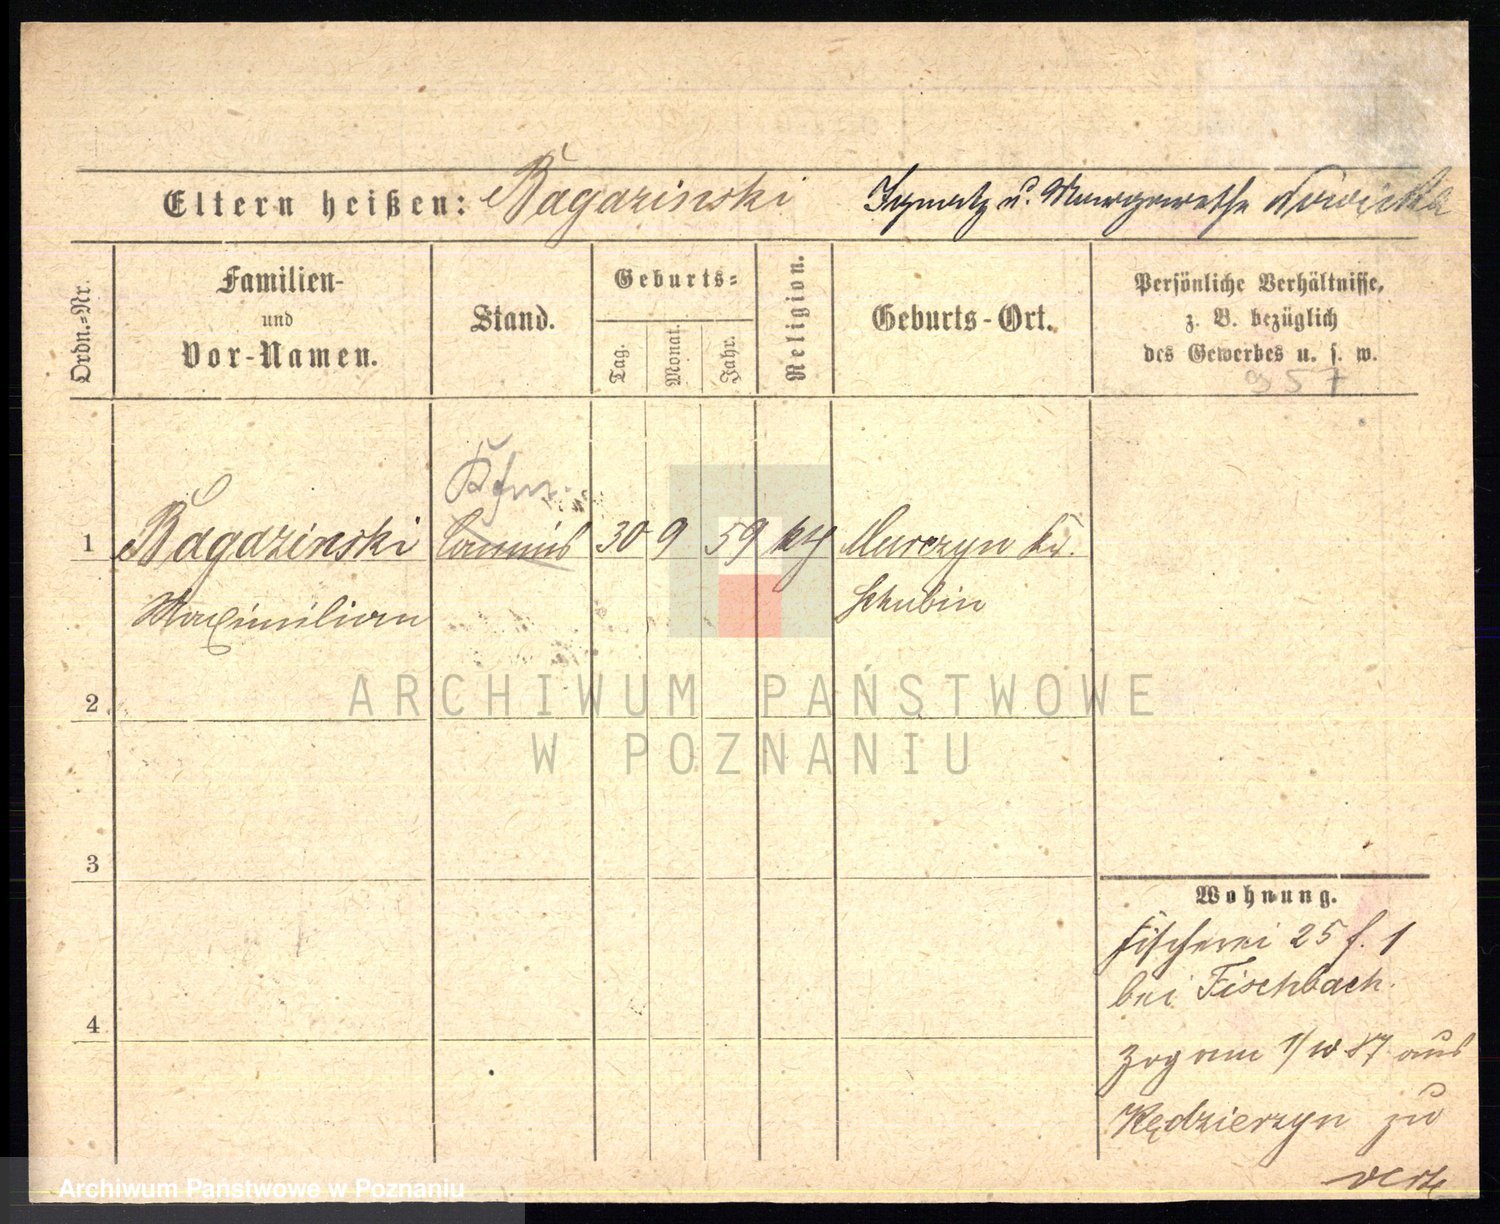 Eltern heißen: Bagazinski Ignatz u. Margarethe Nowicka
Ordn.-Nr.
Familien-
und
Vor-Namen.
Stand.
Geburts-
Tag.
Monat.
Jahr.
Religion.
Geburts-Ort.
Persönliche Verhältnisse,
z. B. bezüglich
des Gewerbes u. s. w.
957
Kfm.
1 Bagazinski Commis 30 9 59 kth Murczyn Kr.
Maximilian Schubin
2
3
4
Wohnung.
Fischerei 25 f. 1
bei Fischbach.
Zog am 1/10 87 aus
Kędzierzyn zu
ARCHIWUM PAŃSTWOWE
W POZNANIU
Archiwum Państwowe w Poznaniu